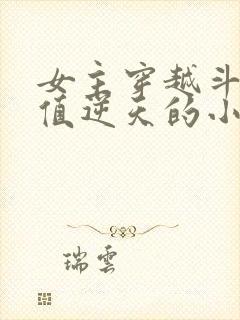 女主穿越斗
值逆天的小
瑞雲